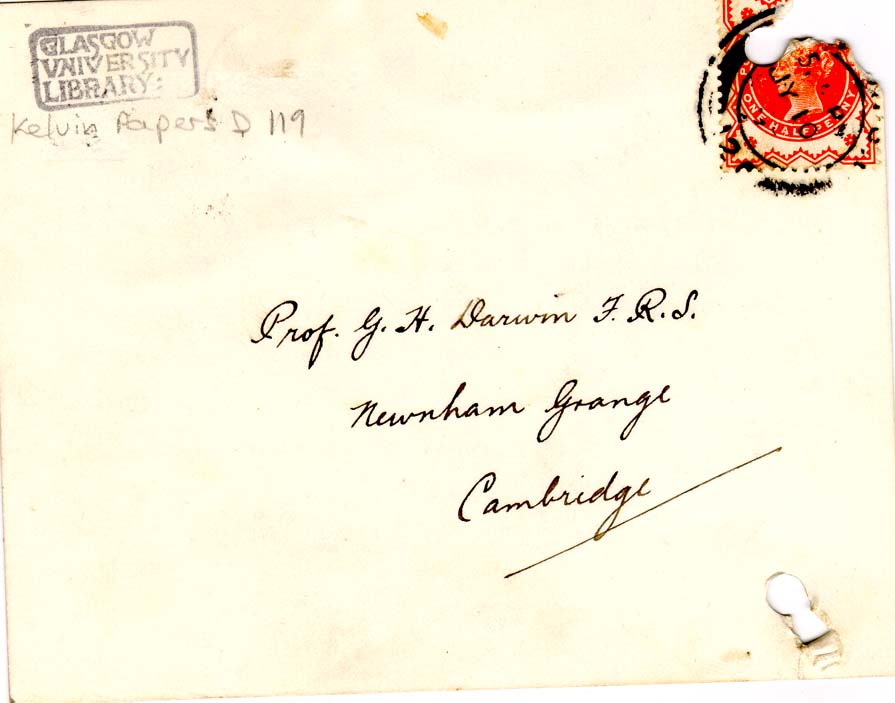 GLASGOW
UNIVERSITY
LIBRARY:
Kelvin Papers D 119
ONE HALFPENNY
JY 10
Prof. G. H. Darwin F. R. S.
Newnham Grange
Cambridge